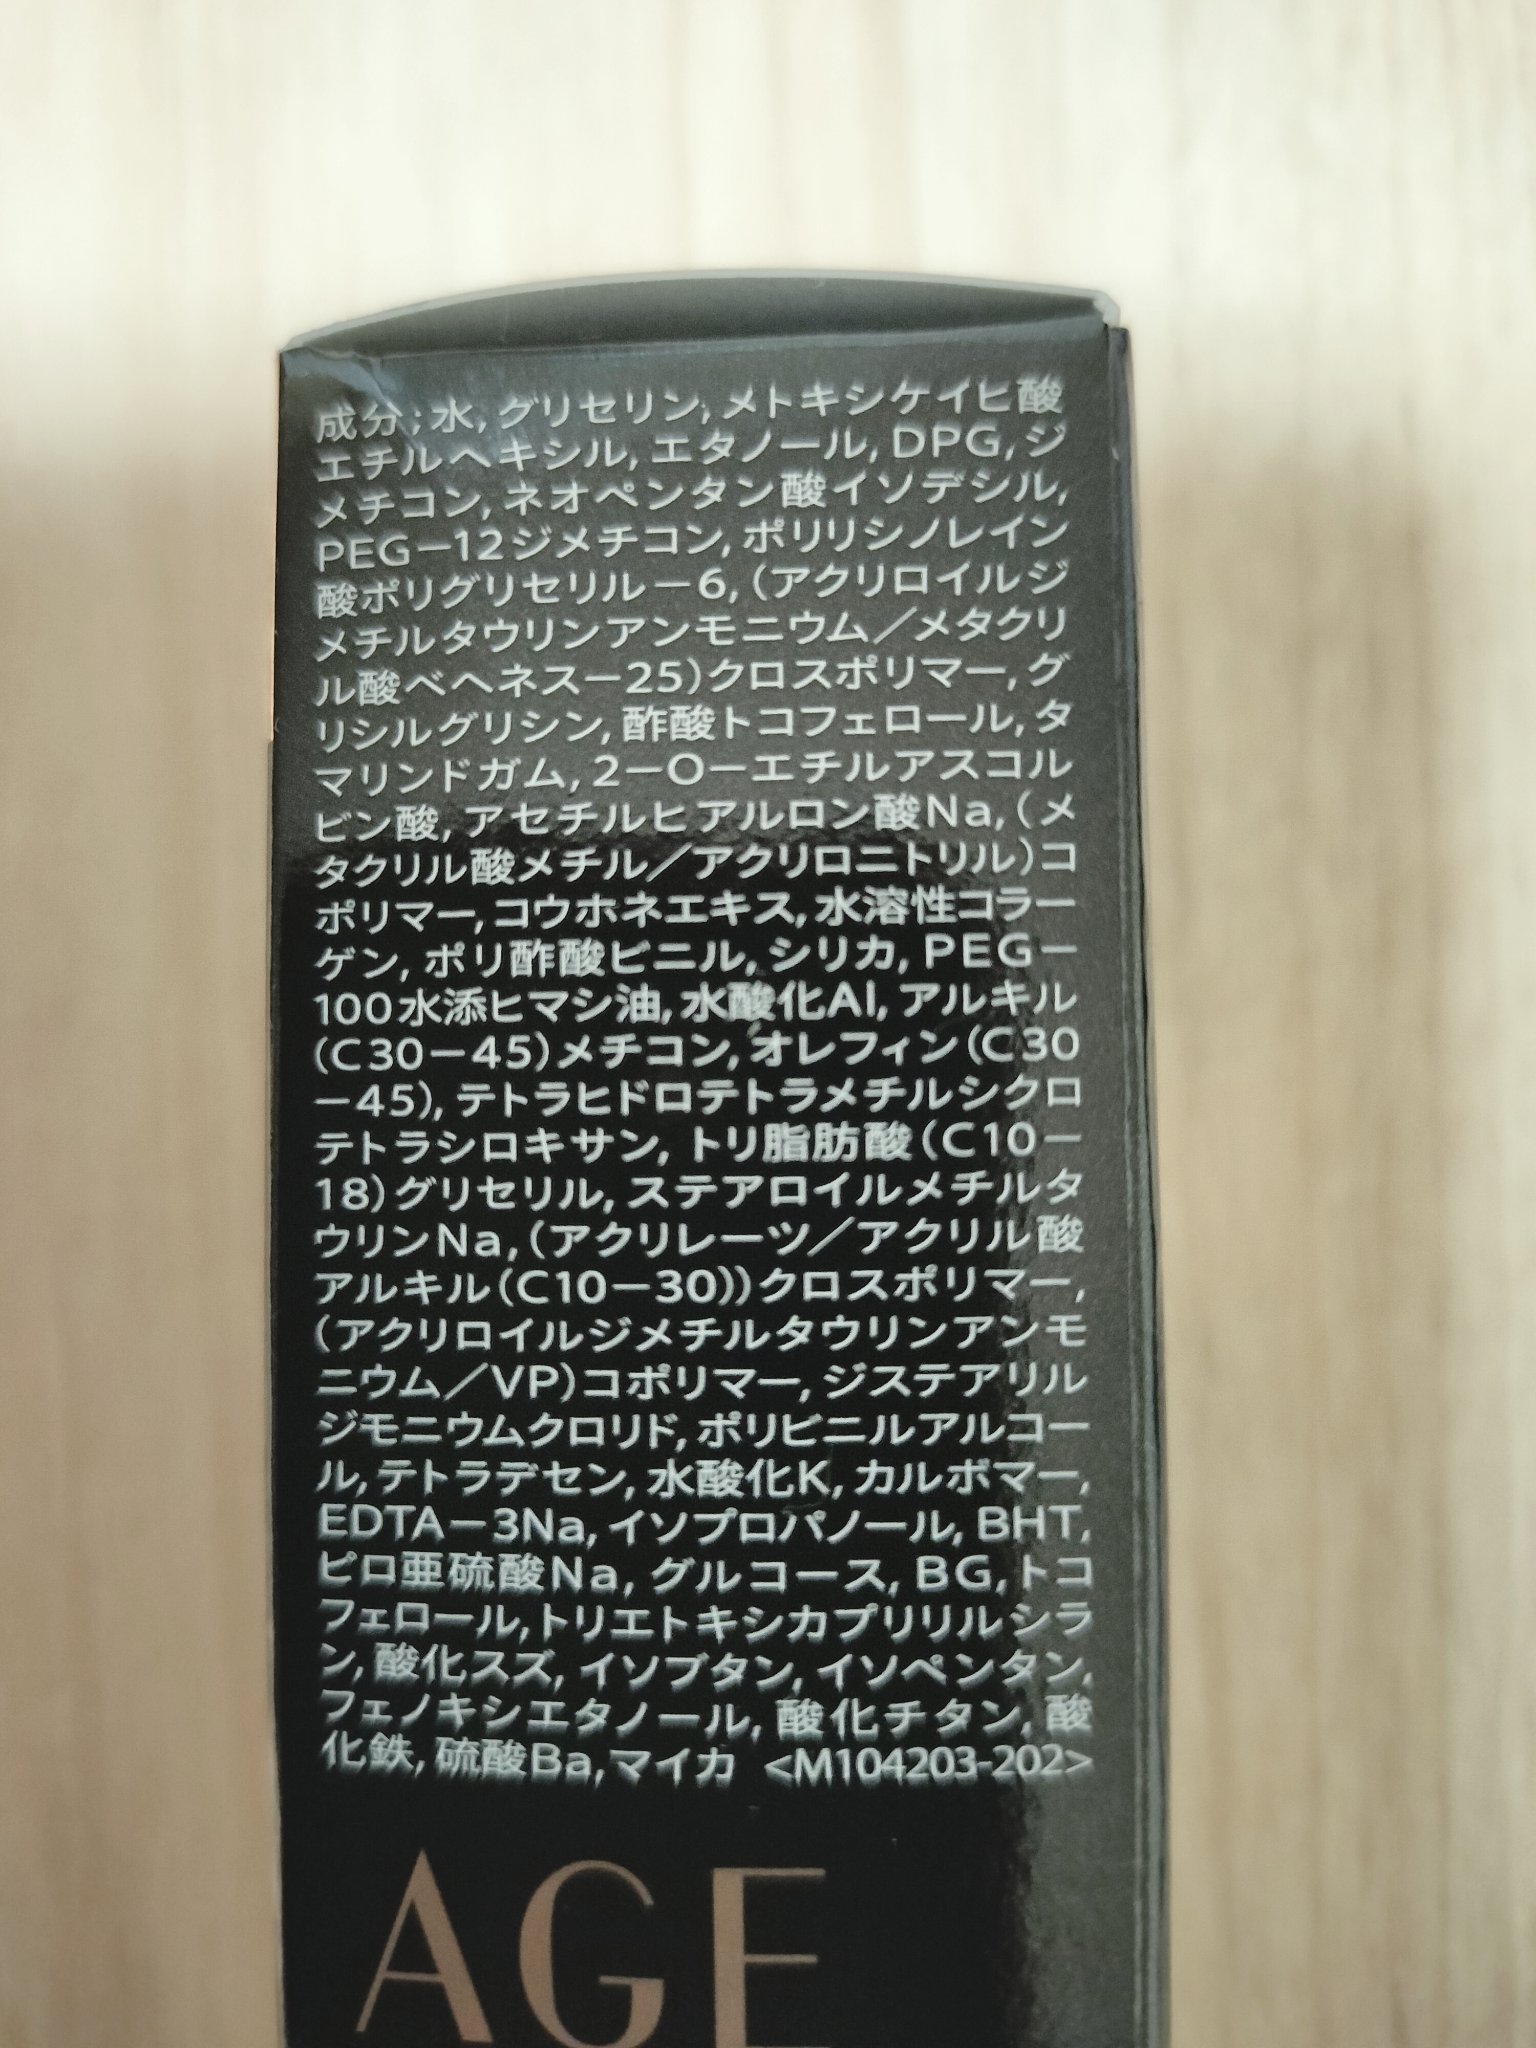 成分;水, グリセリン, メトキシケイヒ酸
エチルヘキシル, エタノール, DPG, ジ
メチコン, ネオペンタン酸イソデシル,
PEG－12ジメチコン, ポリリシノレイン
酸ポリグリセリル－6, (アクリロイルジ
メチルタウリンアンモニウム／メタクリ
ル酸ベヘネス－25)クロスポリマー, グ
リシルグリシン, 酢酸トコフェロール, タ
マリンドガム, 2－O－エチルアスコル
ビン酸, アセチルヒアルロン酸Na, (メ
タクリル酸メチル／アクリロニトリル)コ
ポリマー, コウホネエキス, 水溶性コラー
ゲン, ポリ酢酸ビニル, シリカ, PEG－
100水添ヒマシ油, 水酸化Al, アルキル
(C30－45)メチコン, オレフィン(C30
－45), テトラヒドロテトラメチルシクロ
テトラシロキサン, トリ脂肪酸(C10－
18)グリセリル, ステアロイルメチルタ
ウリンNa, (アクリレーツ／アクリル酸
アルキル(C10－30))クロスポリマー,
(アクリロイルジメチルタウリンアンモ
ニウム／VP)コポリマー, ジステアリル
ジモニウムクロリド, ポリビニルアルコー
ル, テトラデセン, 水酸化K, カルボマー,
EDTA－3Na, イソプロパノール, BHT,
ピロ亜硫酸Na, グルコース, BG, トコ
フェロール, トリエトキシカプリリルシラ
ン, 酸化スズ, イソブタン, イソペンタン,
フェノキシエタノール, 酸化チタン, 酸
化鉄, 硫酸Ba, マイカ <M104203-202>
AGE